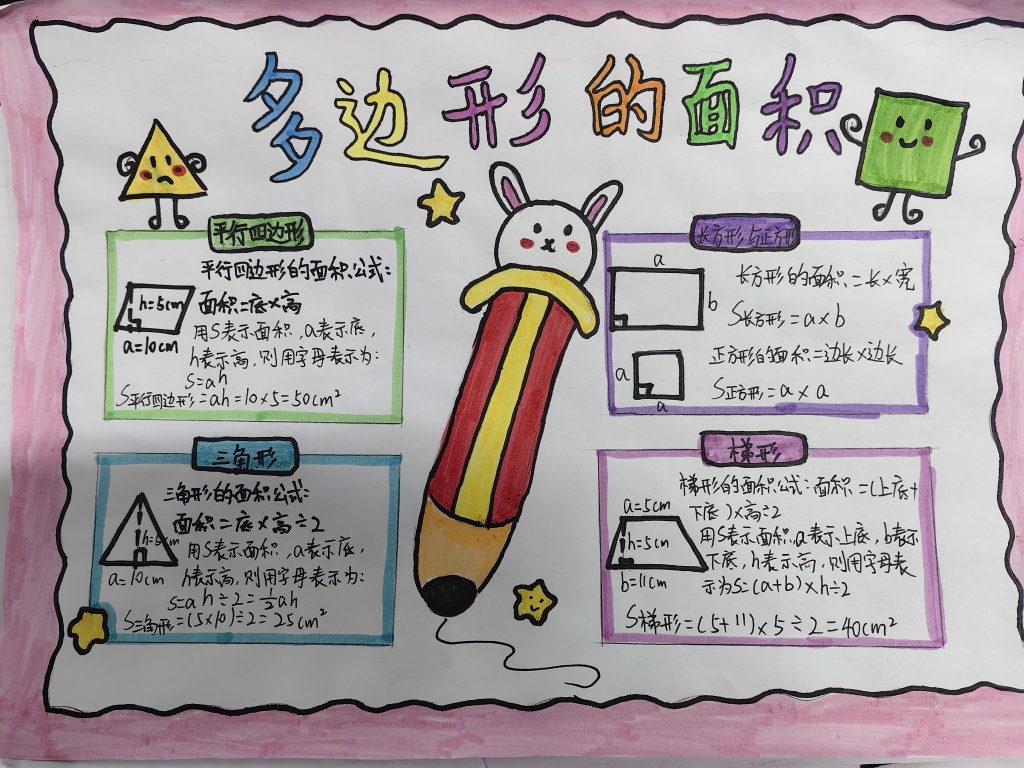 多边形的面积
平行四边形
平行四边形的面积公式:
面积=底×高
用S表示面积,a表示底,
h表示高,则用字母表示为:
s=ah
S平行四边形=ah=10×5=50cm²
h=5cm
a=10cm
长方形与正方形
a
b
长方形的面积=长×宽
S长方形=a×b
正方形的面积=边长×边长
S正方形=a×a
a
a
三角形
三角形的面积公式:
面积=底×高÷2
用S表示面积,a表示底,
h表示高,则用字母表示为:
s=ah÷2=½ah
S三角形=(5×10)÷2=25cm²
h=5cm
a=10cm
梯形
梯形的面积公式:面积=(上底+
下底)×高÷2
用S表示面积,a表示上底,b表示
下底,h表示高,则用字母表
示为s=(a+b)×h÷2
S梯形=(5+11)×5÷2=40cm²
a=5cm
h=5cm
b=11cm